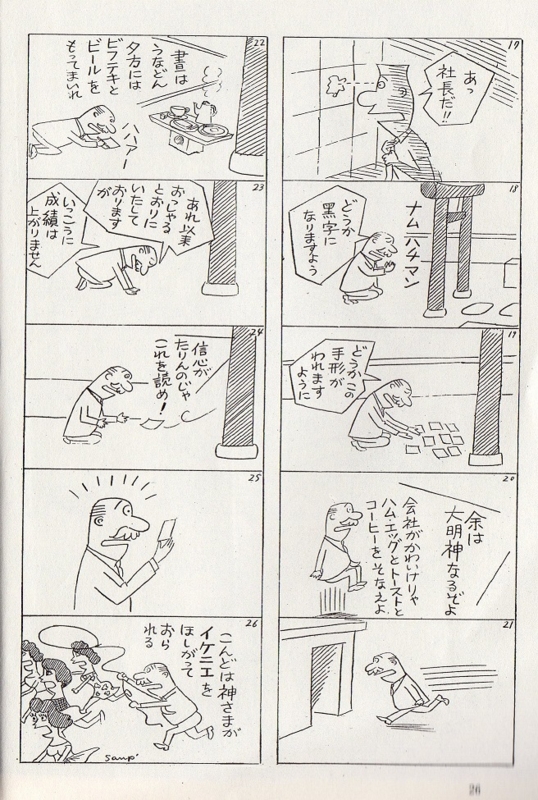 17
あっ
社長だ!!
18
ナムハチマン
どうか
黒字に
なりますよう
19
どうかこの
手形が
われます
ように
20
余は
大明神なるぞよ
会社がかわいけりゃ
ハム・エッグとトーストと
コーヒーをそなえよ
21
22
昼は
うなどん
夕方には
ビフテキと
ビールを
もってまいれ
ハハアー
23
あれ以来
おっしゃる
とおりに
いたして
おりますが
いっこうに
成績は
上がりません
24
信心が
たりんのじゃ
これを読め!
25
26
こんどは神さまが
イケニエを
ほしがって
おら
れる
Sanpei
26